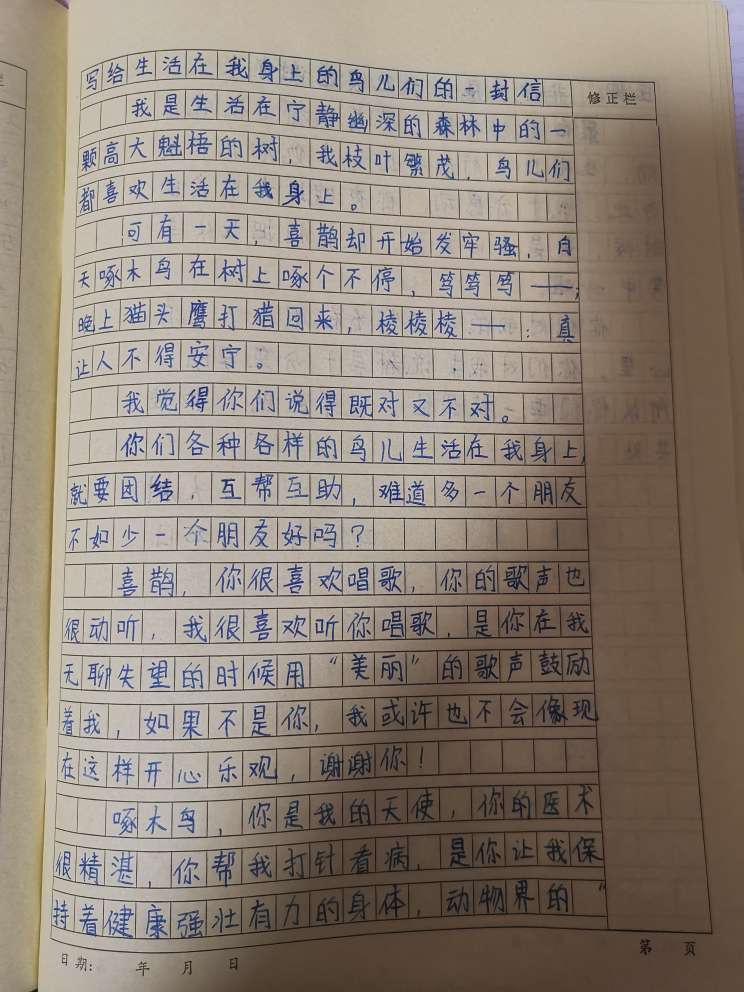 写给生活在我身上的鸟儿们的一封信
修正栏
我是生活在宁静幽深的森林中的一
颗高大魁梧的树，我枝叶繁茂，鸟儿们
都喜欢生活在我身上。
可有一天，喜鹊却开始发牢骚，白
天啄木鸟在树上啄个不停，笃笃笃——；
晚上猫头鹰打猎回来，棱棱棱——：真
让人不得安宁。
我觉得你们说得既对又不对。
你们各种各样的鸟儿生活在我身上，
就要团结，互帮互助，难道多一个朋友
不如少一个朋友好吗？
喜鹊，你很喜欢唱歌，你的歌声也
很动听，我很喜欢听你唱歌，是你在我
无聊失望的时候用“美丽”的歌声鼓励
着我，如果不是你，我或许也不会像现
在这样开心乐观，谢谢你！
啄木鸟，你是我的天使，你的医术
很精湛，你帮我打针看病，是你让我保
持着健康强壮有力的身体，动物界的“
第 页
日期： 年 月 日